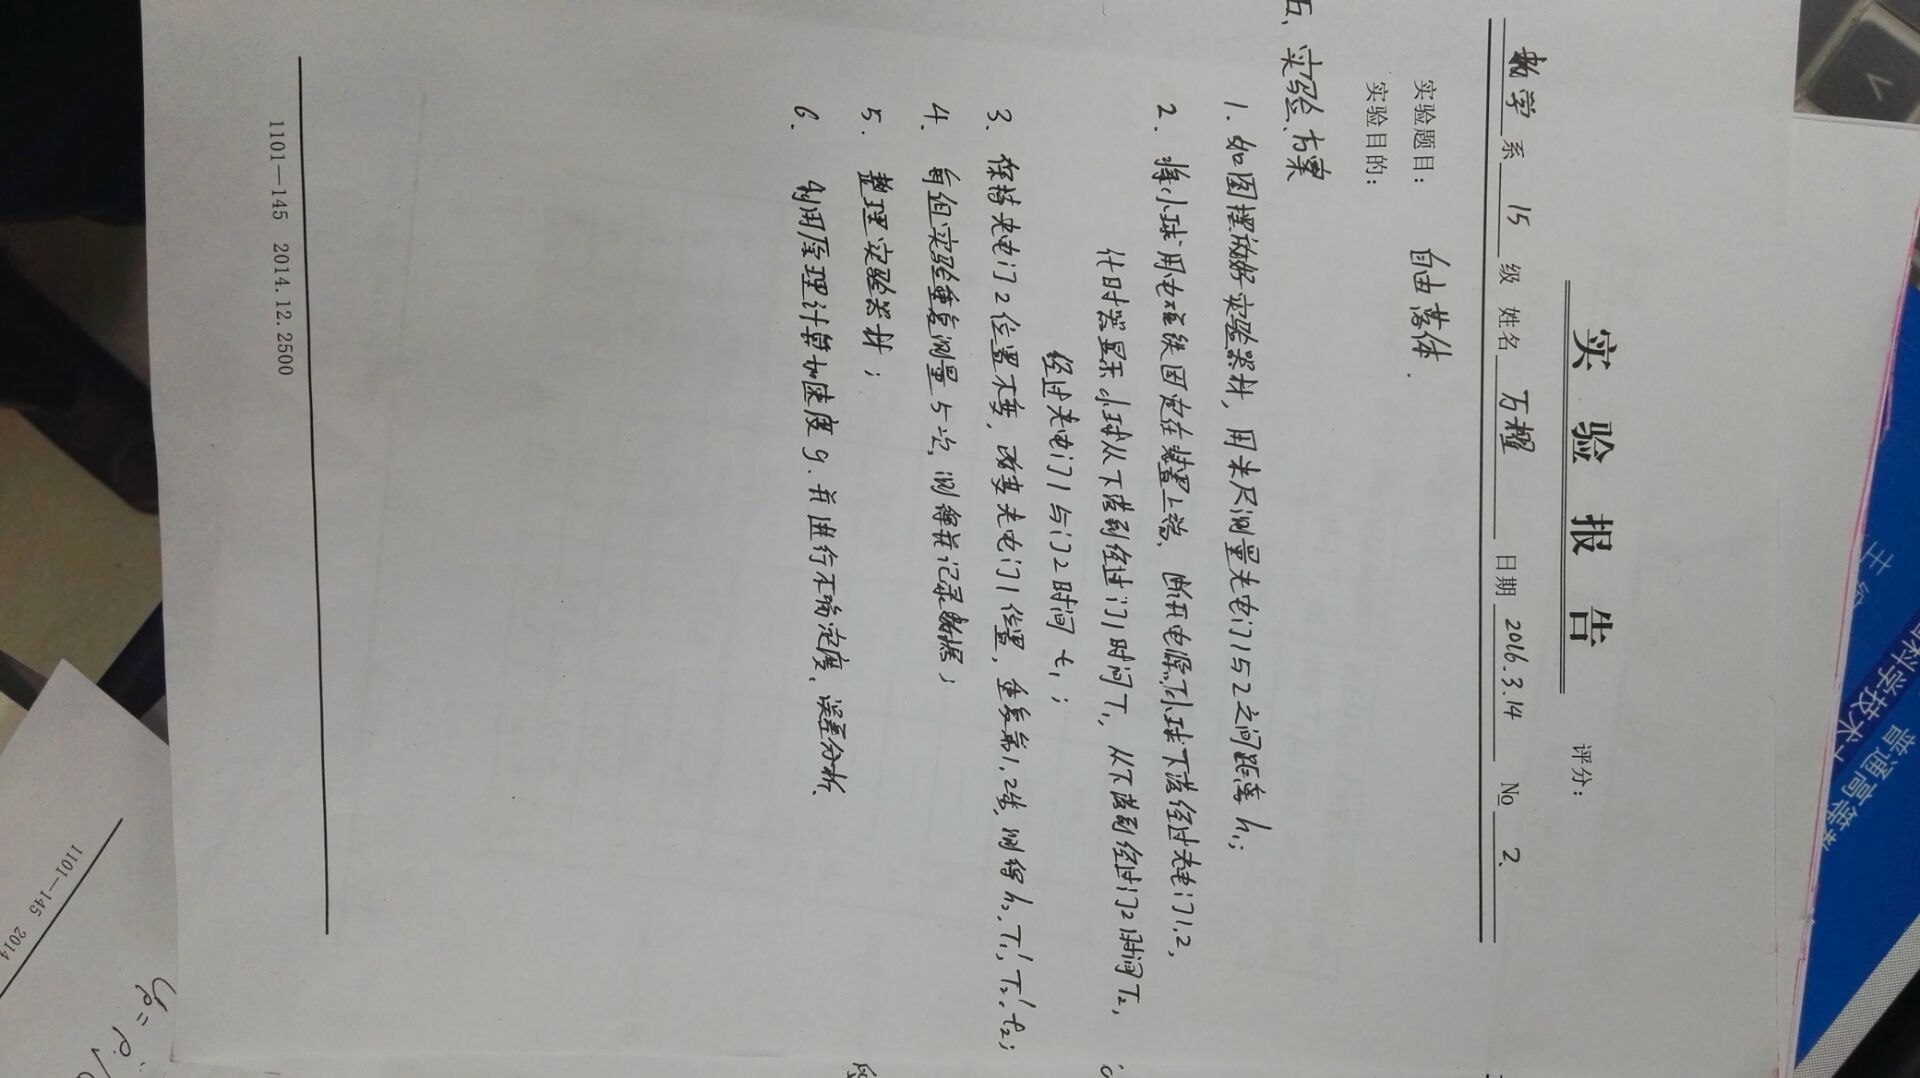 实验报告
评分:
数学系 15 级 姓名 万樱 日期 2016.3.14 No 2.
实验题目: 自由落体.
实验目的:
五、实验方案
1. 如图摆放好实验器材, 用米尺测量光电门1与2之间距离 h₁;
2. 将小球用电磁铁固定在装置上端, 断开电源, 小球下落经过光电门1,2,
计时器显示小球从下落到经过门1时间T₁, 从下落到经过门2时间T₂,
经过光电门1与门2时间 t₁;
3. 保持光电门2位置不变, 改变光电门1位置, 重复第1,2步, 测得h₂, T₁', T₂', t₂;
4. 每组实验重复测量5次, 测得并记录数据;
5. 整理实验器材;
6. 利用原理计算加速度g. 并进行不确定度、误差分析.
1101—145 2014.12.2500
1101—145 2014
普通高等
科学技术
主